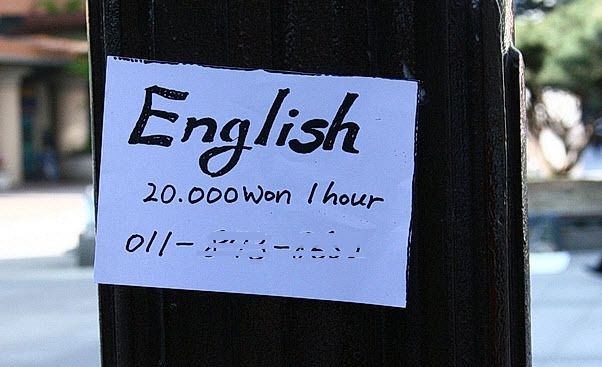 English
20.000 Won 1 hour
011-